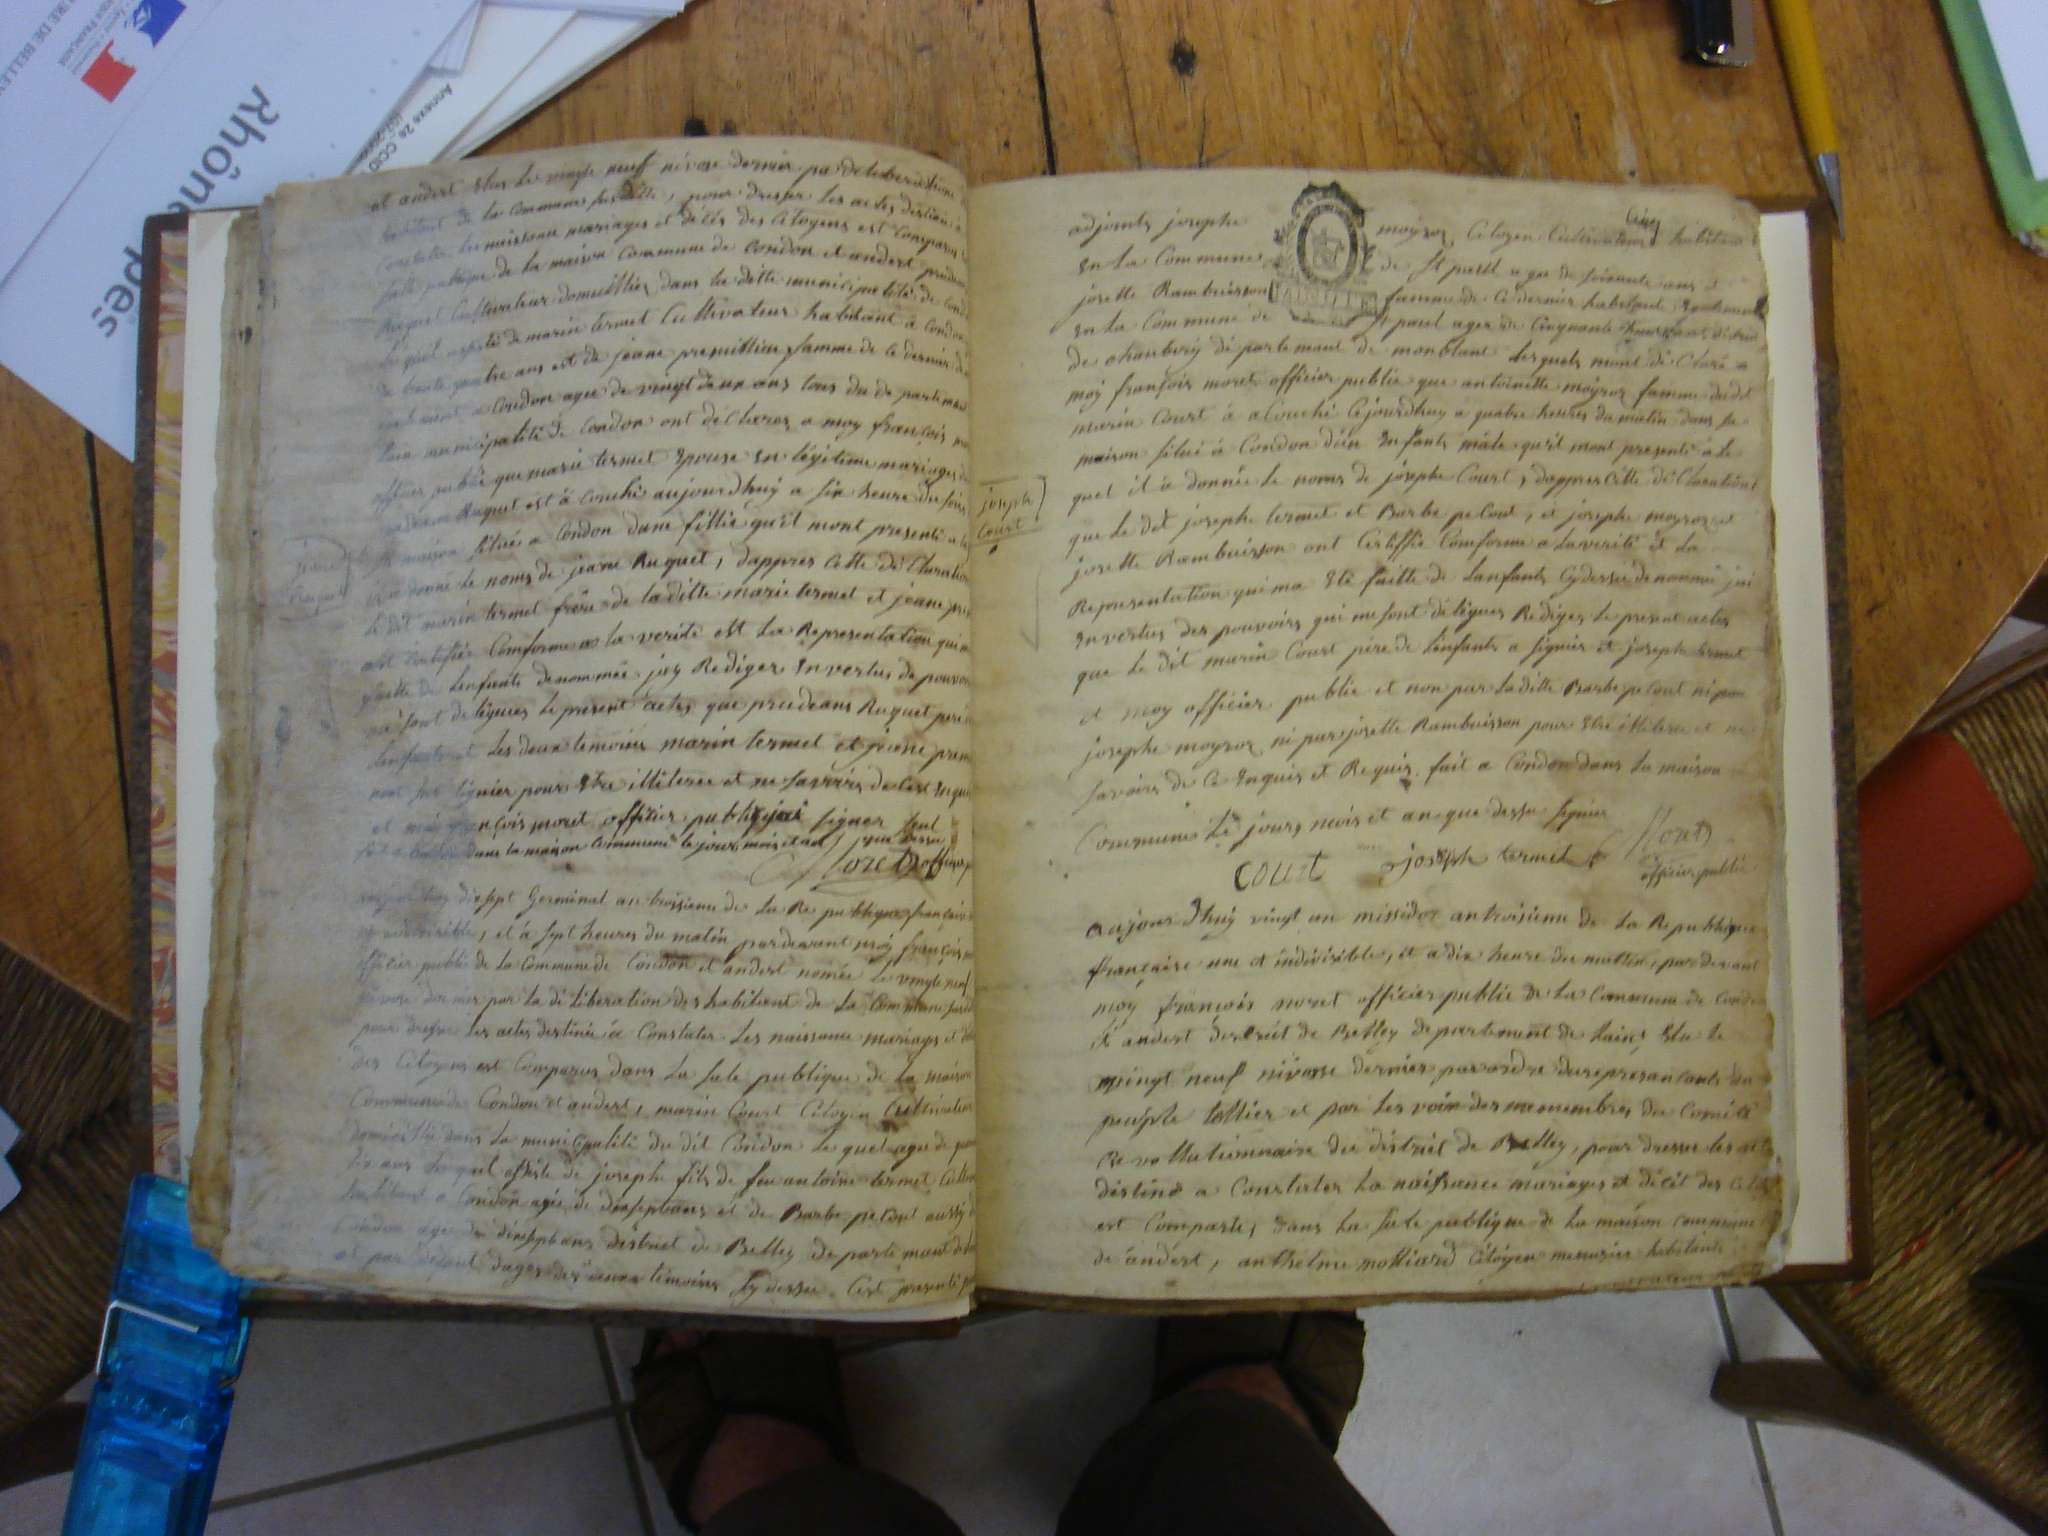 et andert Elus Le vingte neuff nivose dernier par deliberations
habitant de la Commune susditte, pour dresser les actes destinée a
Constater les naissance mariages et décés des Citoyens est Comparus
salle publique de la maison Commune de Condon et andert prudean
Ruquet Cultivateur domicilliés dans la ditte municipalité de Condon
le quel assisté de marin termet Cultivateur habitant a Condon
de trente quatre ans est de jeane premillieu famme de le dernier
a Condon agee de vingt deux ans tous du departement
Lain municipalité de Condon ont déclarer a moy françois moret
officier public que marie termet Epouse En légitime mariages
prudean Ruquet est à couché aujourdhuy a six heure du soir
maison situé a Condon dune fillie qu'il mont presenté a la
donné le noms de jeane Ruquet, dappres cette déClaration
le dit marin termet frère de laditte marie termet et jeane pre
ont certifié Comforme a la verité est La Représentation qui
faitte de Lenfants denommée jay Rediger En vertus de pouvoir
me sont delégues Le present actes que prudeans Ruquet peri
Lenfants et Les deux temoins marin termet et jeane prem
nont sus signier pour Etre illiteree et ne savoirs de ce Enquis
et moy françois moret officier public jai signer seul
dans la maison commune le jour mois et an que dessu
Moret officier p
jeane
Ruquet
aujourdhuy disept Germinal an troisieme de La Republique françoise
indivisible, et à sept heures du matin pardevant moy françois
officier public de la Commune de Condon et andert nomée Le vingte neuf
nivose dernier par la déliberation des habitant de La Commune susd
pour dresser Les actes destinée à Constater Les naissance mariages et
des Citoyens est Comparus dans La sale publique de La maison
Commune de Condon et andert, marin Court Citoyen Cultivateur
domicillié dans La municipalité du dit Condon Le quel agée de
ans Le quel assiste de josephe fils de feu antoine termet Cultiv
habitant a Condon agée de diseptans et de Barbe pecout aussy
Condon age de diseptans district de Belley departemant
et par defaut dages des deux temoins sy dessu. Cest presenté
joseph
Court
adjoints josephe moyroz, Citoyen Cultivateur habitant
En La Commune de St paul agee de soixante ans et
josette Rambuisson famme de Ce dernier habitant
En La Commune de St paul agee de Cinquante
de chambery departemant de monblant Lesquels mont dé Claré a
moy françois moret officier public que antoinette moyroz famme dudit
marin Court à alouché Cejourdhuy a quatre heures du matin dans sa
maison situé à Condon dun Enfants mâle qu'il mont presenté à Le
quel il à donnée Le noms de jôsephe Court, dappres Cette déClarations
que Le dit josephe termet et Barbe pecout, et josephe moyroz et
josette Rambuisson ont Certiffié Comforme a La verité et La
Representation qui ma Eté faitte de Lanfants Cydessu denommé jai
En vertus des pouvoirs qui me sont délégues Rediger Le present actes
que Le dit marin Court père de Lenfants a signier et joseph termet
et moy officier public et non par Laditte Barbe pecout ni par
josephe moyroz ni par josette Rambuisson pour Etre illiteree et ne
savoirs de Ce Enquis et Requis. fait a Condon dans La maison
Commune Le jours mois et an que dessu signier
Court joseph termet Moret
officier public
aujourdhuy vingt un missidor an troisieme de La Republique
françaises une et indivisible, et a dix heure du mattin, pardevant
moy françois moret officier public de La Commune de Condon
et andert destrict de Belley departement de Lain, Elu Le
vingt neuf nivose dernier par ordre du representants du
peuple tellier et par Les voix des memembres du Comité
Revollutionnaire du district de Belley, pour dresser Les ac
destiné a Constater La naissance mariages et décés des Cito
est Comparu, dans La sale publique de La maison commune
de andert, anthelme mottiard Citoyen menusier habitant
Rhône
pes
Annexe 2a CCID